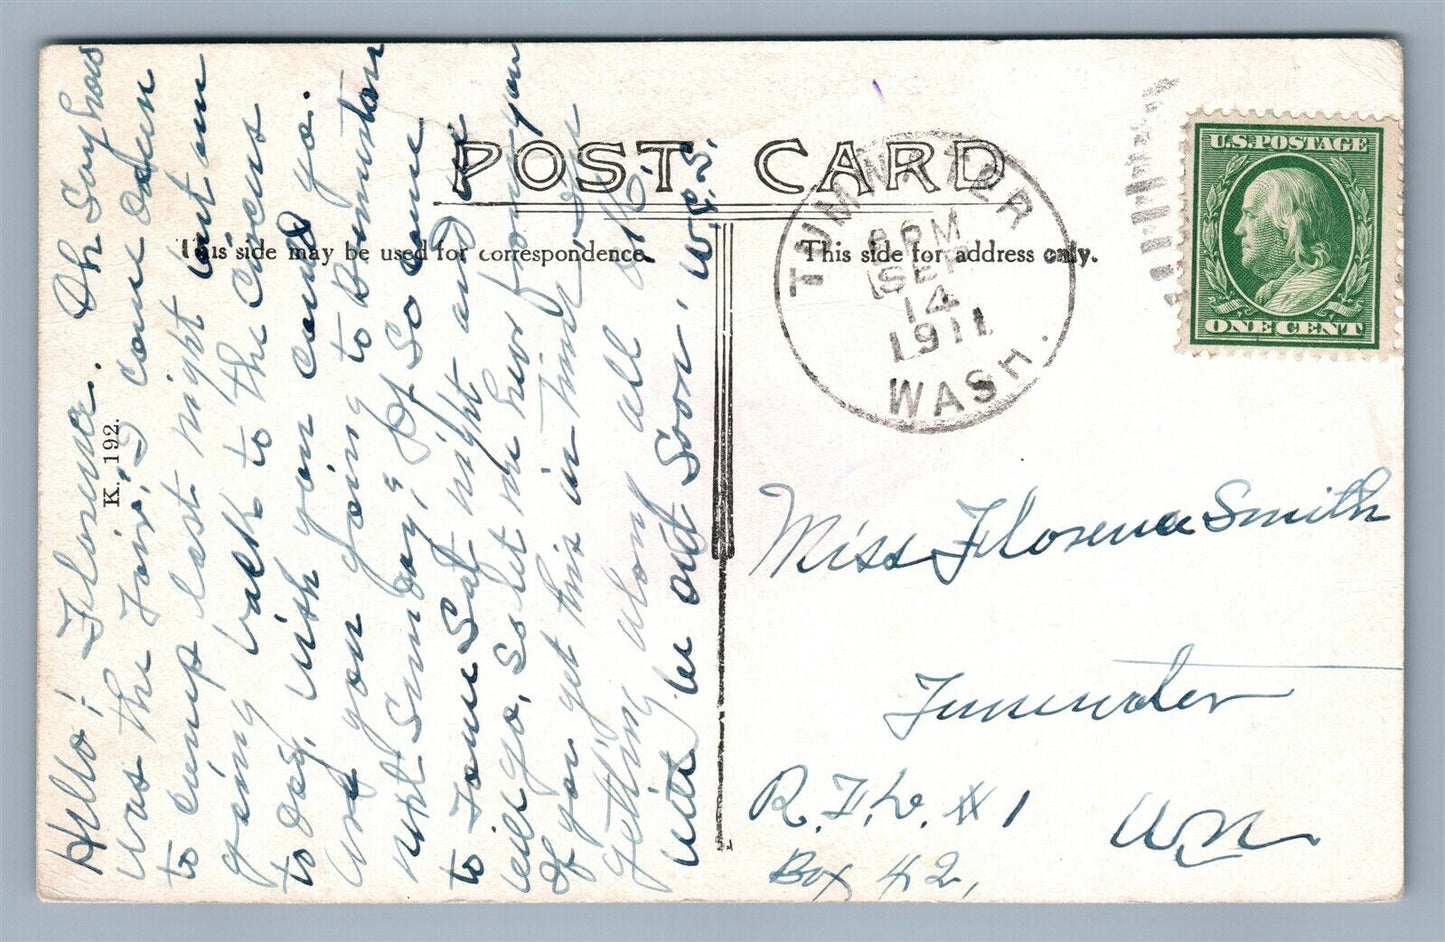 POST CARD
This side may be used for correspondence.
This side for address only.
TUMWATER
PM
SEP
14
1911
WASH.
U.S.POSTAGE
ONE CENT
K. 192.
Hello! Florence. Oh Say has
was the Fair, I came down
to camp last night but am
going back to the Circus
to day, wish you could go.
are you going to Bornuston
next Sunday? If So come
to Town Sat night and we
will go, So let me hear from you
If you get this in time, I am
getting along all O.K.
will be out Soon, W.C.S.
Miss Florence Smith
Tumwater
R.F.D. #1 Wn
Box 42,